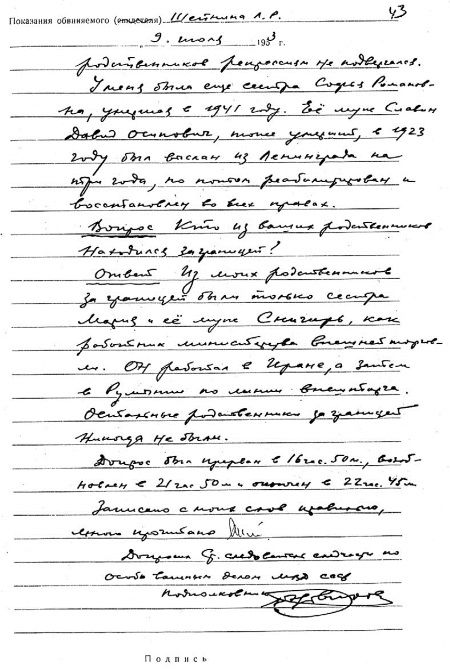 43
Показания обвиняемого (свидетеля) Шейнина Л.Р.
9. июля 1953 г.
родственников репрессиям не подвергался.
У меня была еще сестра Софья Романов-
на, умершая в 1941 году. Её муж Славин
Давид Осипович, тоже умерший, в 1923
году был выслан из Ленинграда на
три года, но потом реабилитирован и
восстановлен во всех правах.
Вопрос Кто из ваших родственников
находился за границей?
Ответ Из моих родственников
за границей были только сестра
Мария и её муж Снигирь, как
работник министерства внешней торгов-
ли. Он работал в Иране, а затем
в Румынии по линии внешторга.
Остальные родственники за границей
никогда не были.
Допрос был прерван в 16 час. 50 м., возоб-
новлен в 21 час 50 м и окончен в 22 час. 45 м
Записано с моих слов правильно,
мною прочитано
Допросил Ст. следователь следчасти по
особо важным делам МВД СССР
подполковник
Подпись